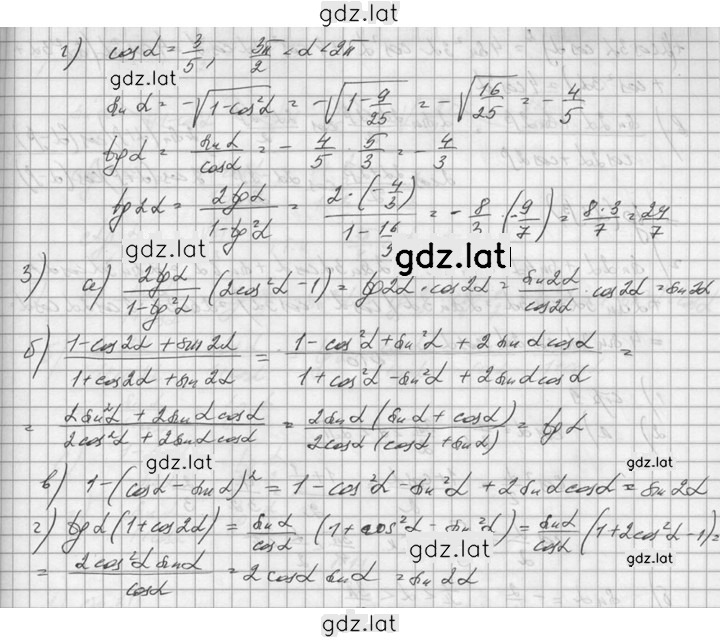 gdz.lat
г) cos α = 3/5, 3π/2 < α < 2π
gdz.lat
sin α = -√(1-cos²α) = -√(1-9/25) = -√(16/25) = -4/5
tg α = sin α/cos α = -4/5 · 5/3 = -4/3
tg 2α = 2tg α/(1-tg²α) = 2·(-4/3)/(1-16/9) = -8/3 · (-9/7) = 8·3/7 = 24/7
gdz.lat gdz.lat
3) а) 2tg α/(1-tg²α) (2cos²α - 1) = tg 2α · cos 2α = sin 2α/cos 2α · cos 2α = sin 2α
б) (1-cos 2α + sin 2α)/(1+cos 2α + sin 2α) = (1-cos²α + sin²α + 2 sin α cos α)/(1+cos²α - sin²α + 2 sin α cos α) =
= (2 sin²α + 2 sin α cos α)/(2cos²α + 2 sin α cos α) = 2 sin α (sin α + cos α)/2cos α (cos α + sin α) = tg α
gdz.lat gdz.lat
в) 1-(cos α - sin α)² = 1 - cos²α - sin²α + 2 sin α cos α = sin 2α
г) tg α (1+cos 2α) = sin α/cos α (1+cos²α - sin²α) = sin α/cos α (1+2cos²α - 1) =
gdz.lat
= 2cos²α sin α/cos α = 2 cos α sin α = sin 2α
gdz.lat gdz.lat
gdz.lat